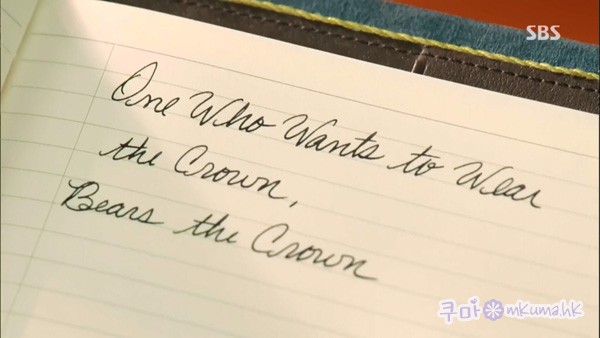 SBS
One Who Wants to Wear
the Crown,
Bears the Crown
쿠마 mkuma.hk